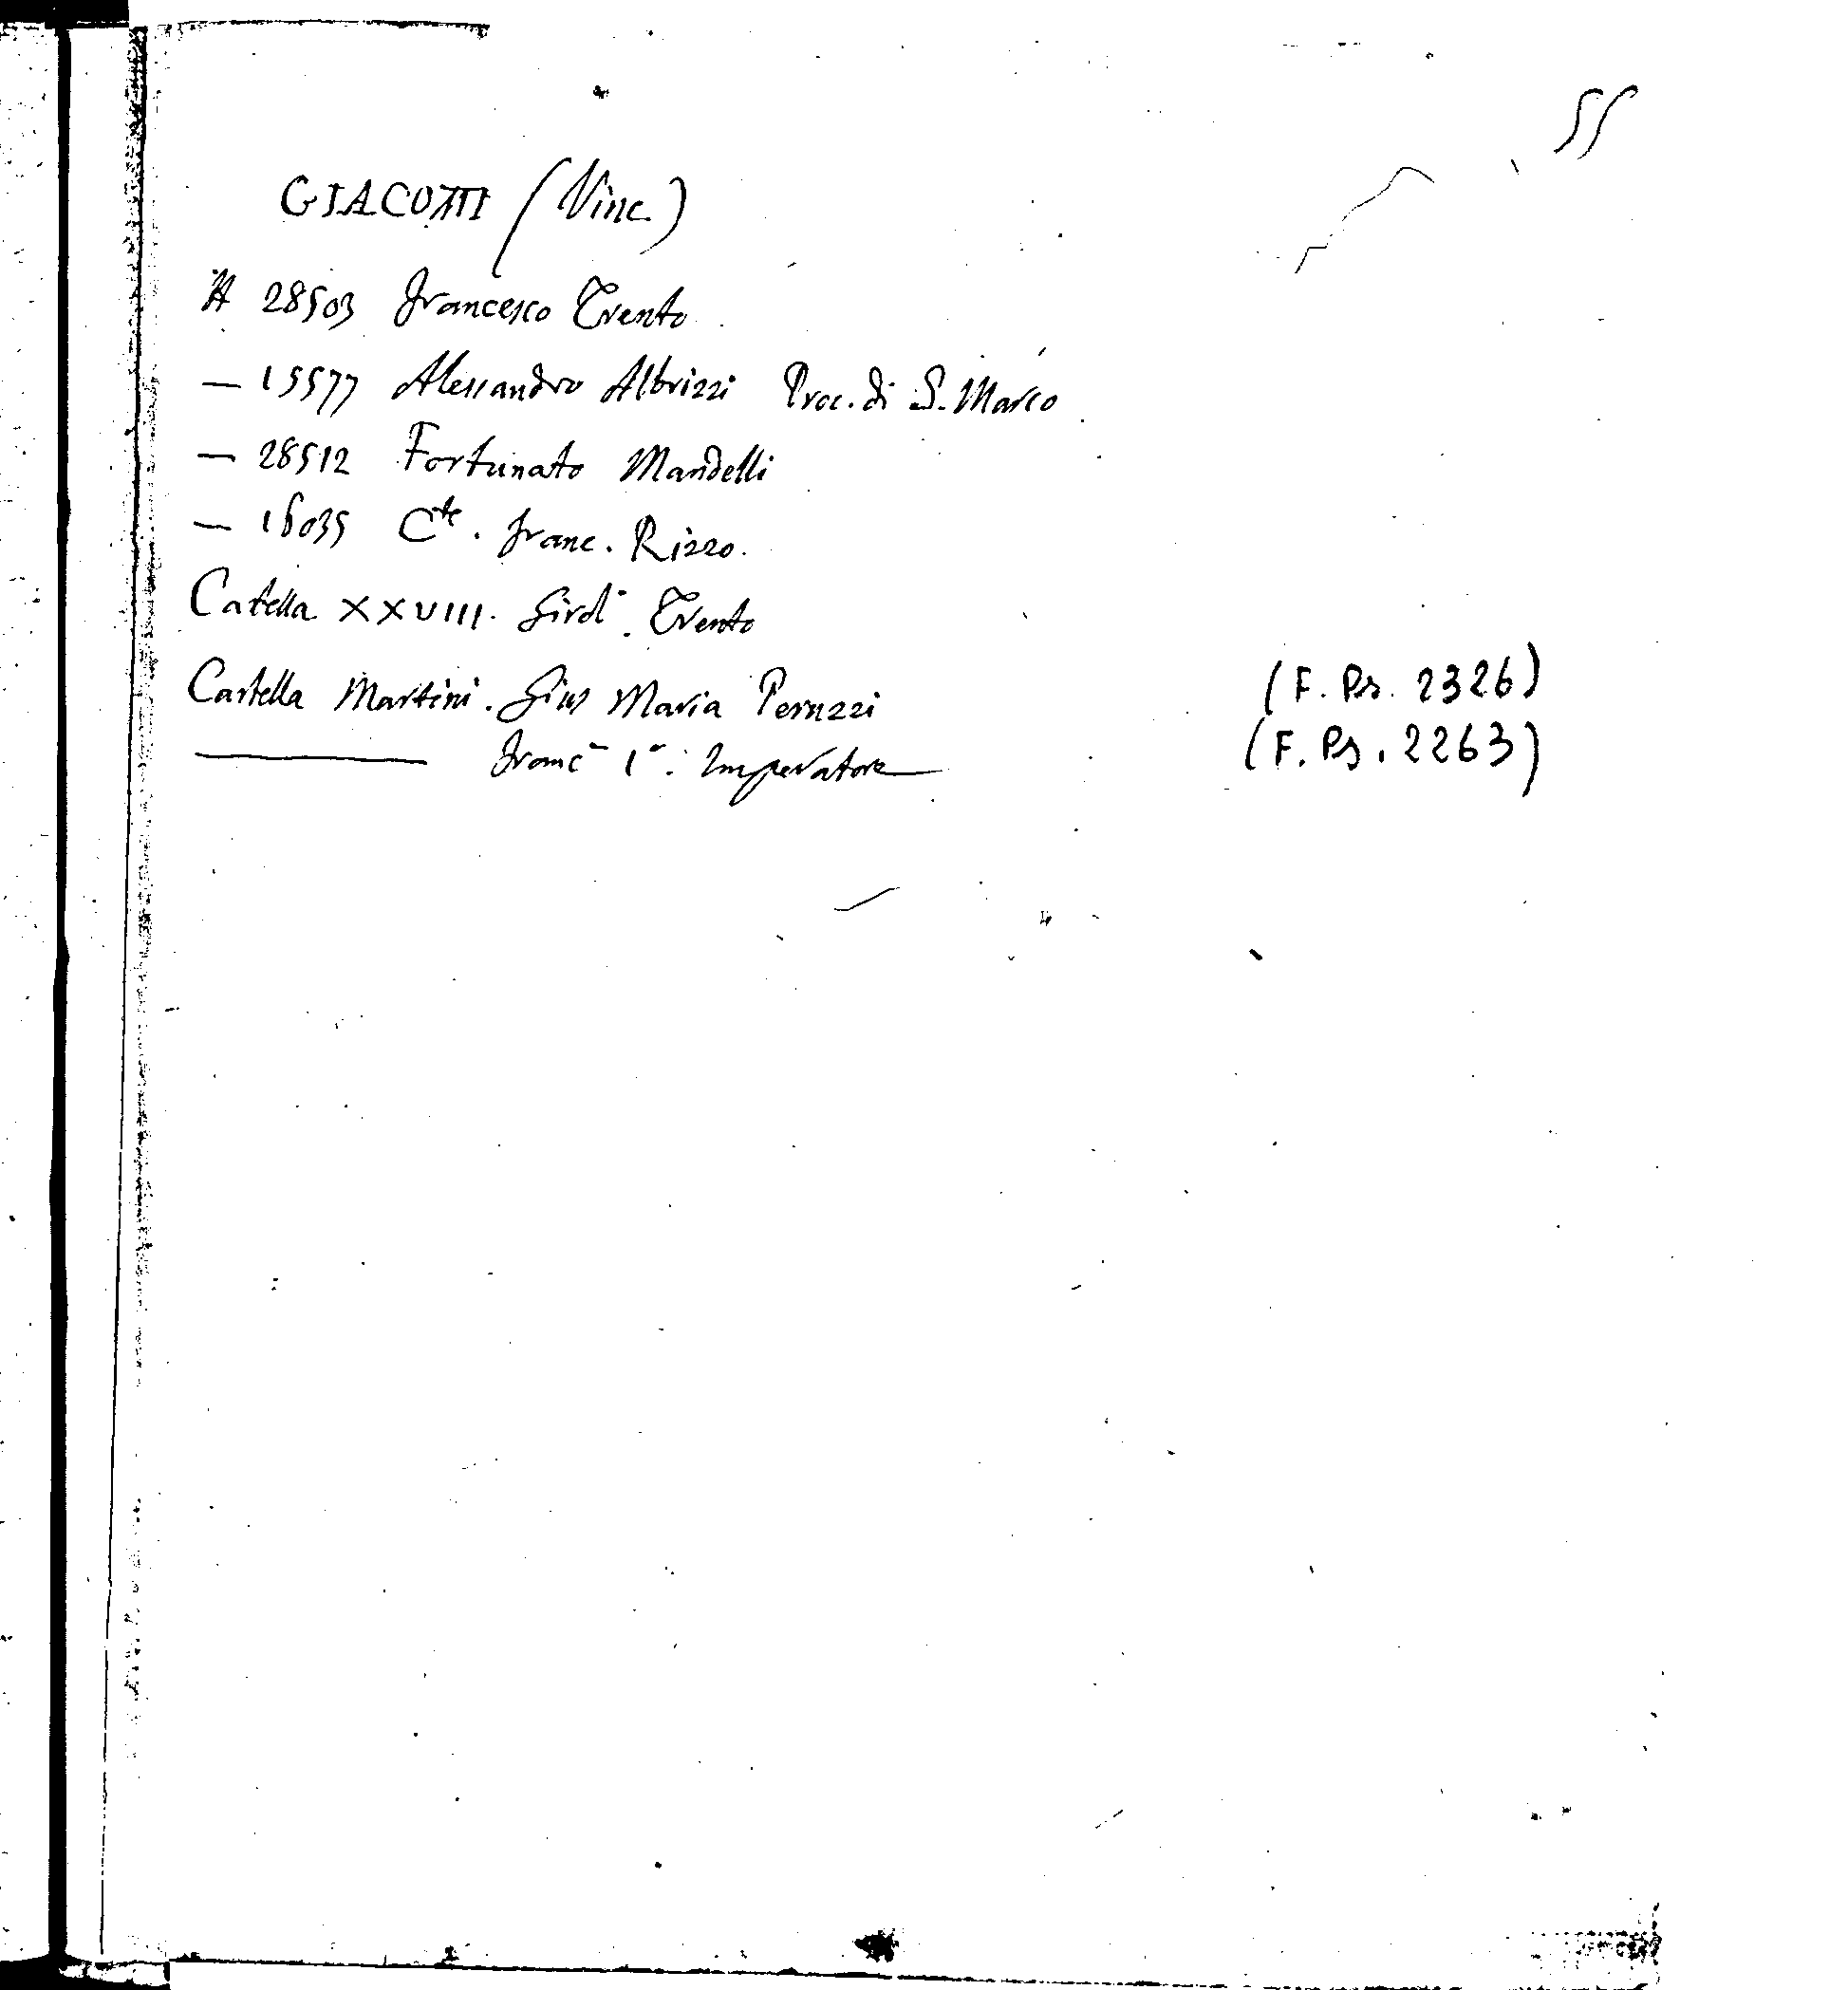 55
GIACOMI (Vinc.)
A 28503 Francesco Trento
— 15577 Alessandro Albrizzi Proc. di S. Marco
— 28512 Fortunato Mandelli
— 16035 Cte. Franc. Rizzo.
Catella XXVIII. Girol. Trento
Cartella Martini. Gius Maria Peruzzi (F. Ps. 2326)
— Franc 1°. Imperatore (F. Ps. 2263)